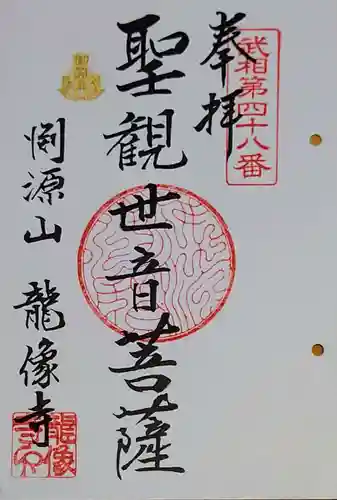 武相第四十八番
奉拝
聖観世音菩薩
惻源山 龍像寺